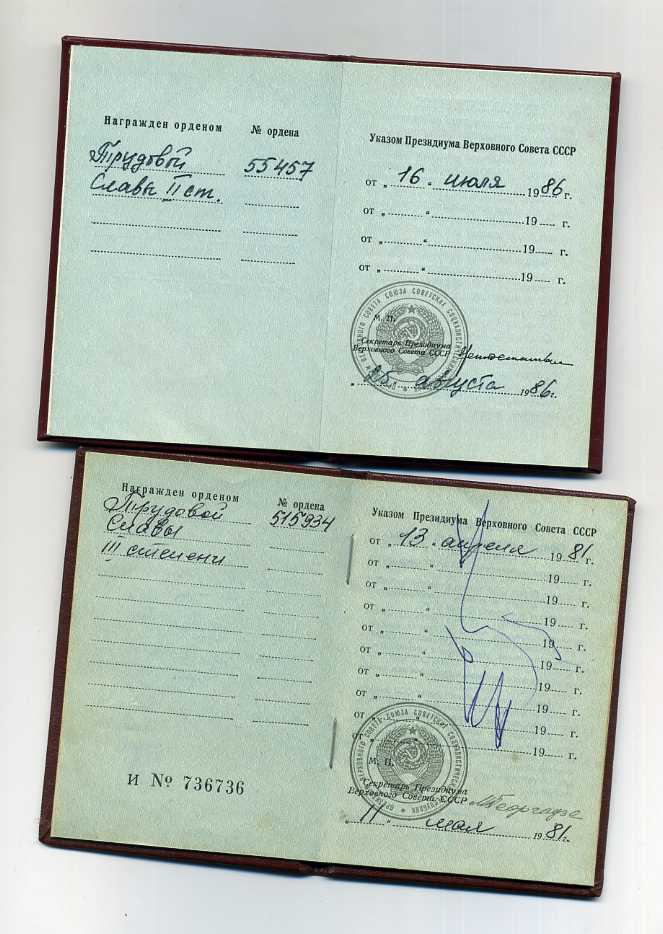 Награжден орденом № ордена
Трудовой 55457
Славы II ст.
Указом Президиума Верховного Совета СССР
от „ 16 “ июля 1986 г.
от „ “ 19 г.
от „ “ 19 г.
от „ “ 19 г.
М. П.
Секретарь Президиума
Верховного Совета СССР
августа 1986 г.
Награжден орденом № ордена
Трудовой 515934
Славы
III степени
И № 736736
Указом Президиума Верховного Совета СССР
от „ 13 “ апреля 1981 г.
от „ “ 19 г.
от „ “ 19 г.
от „ “ 19 г.
от „ “ 19 г.
от „ “ 19 г.
от „ “ 19 г.
от „ “ 19 г.
от „ “ 19 г.
от „ “ 19 г.
М. П.
Секретарь Президиума
Верховного Совета СССР МГеоргадзе
„ 11 “ мая 1981 г.